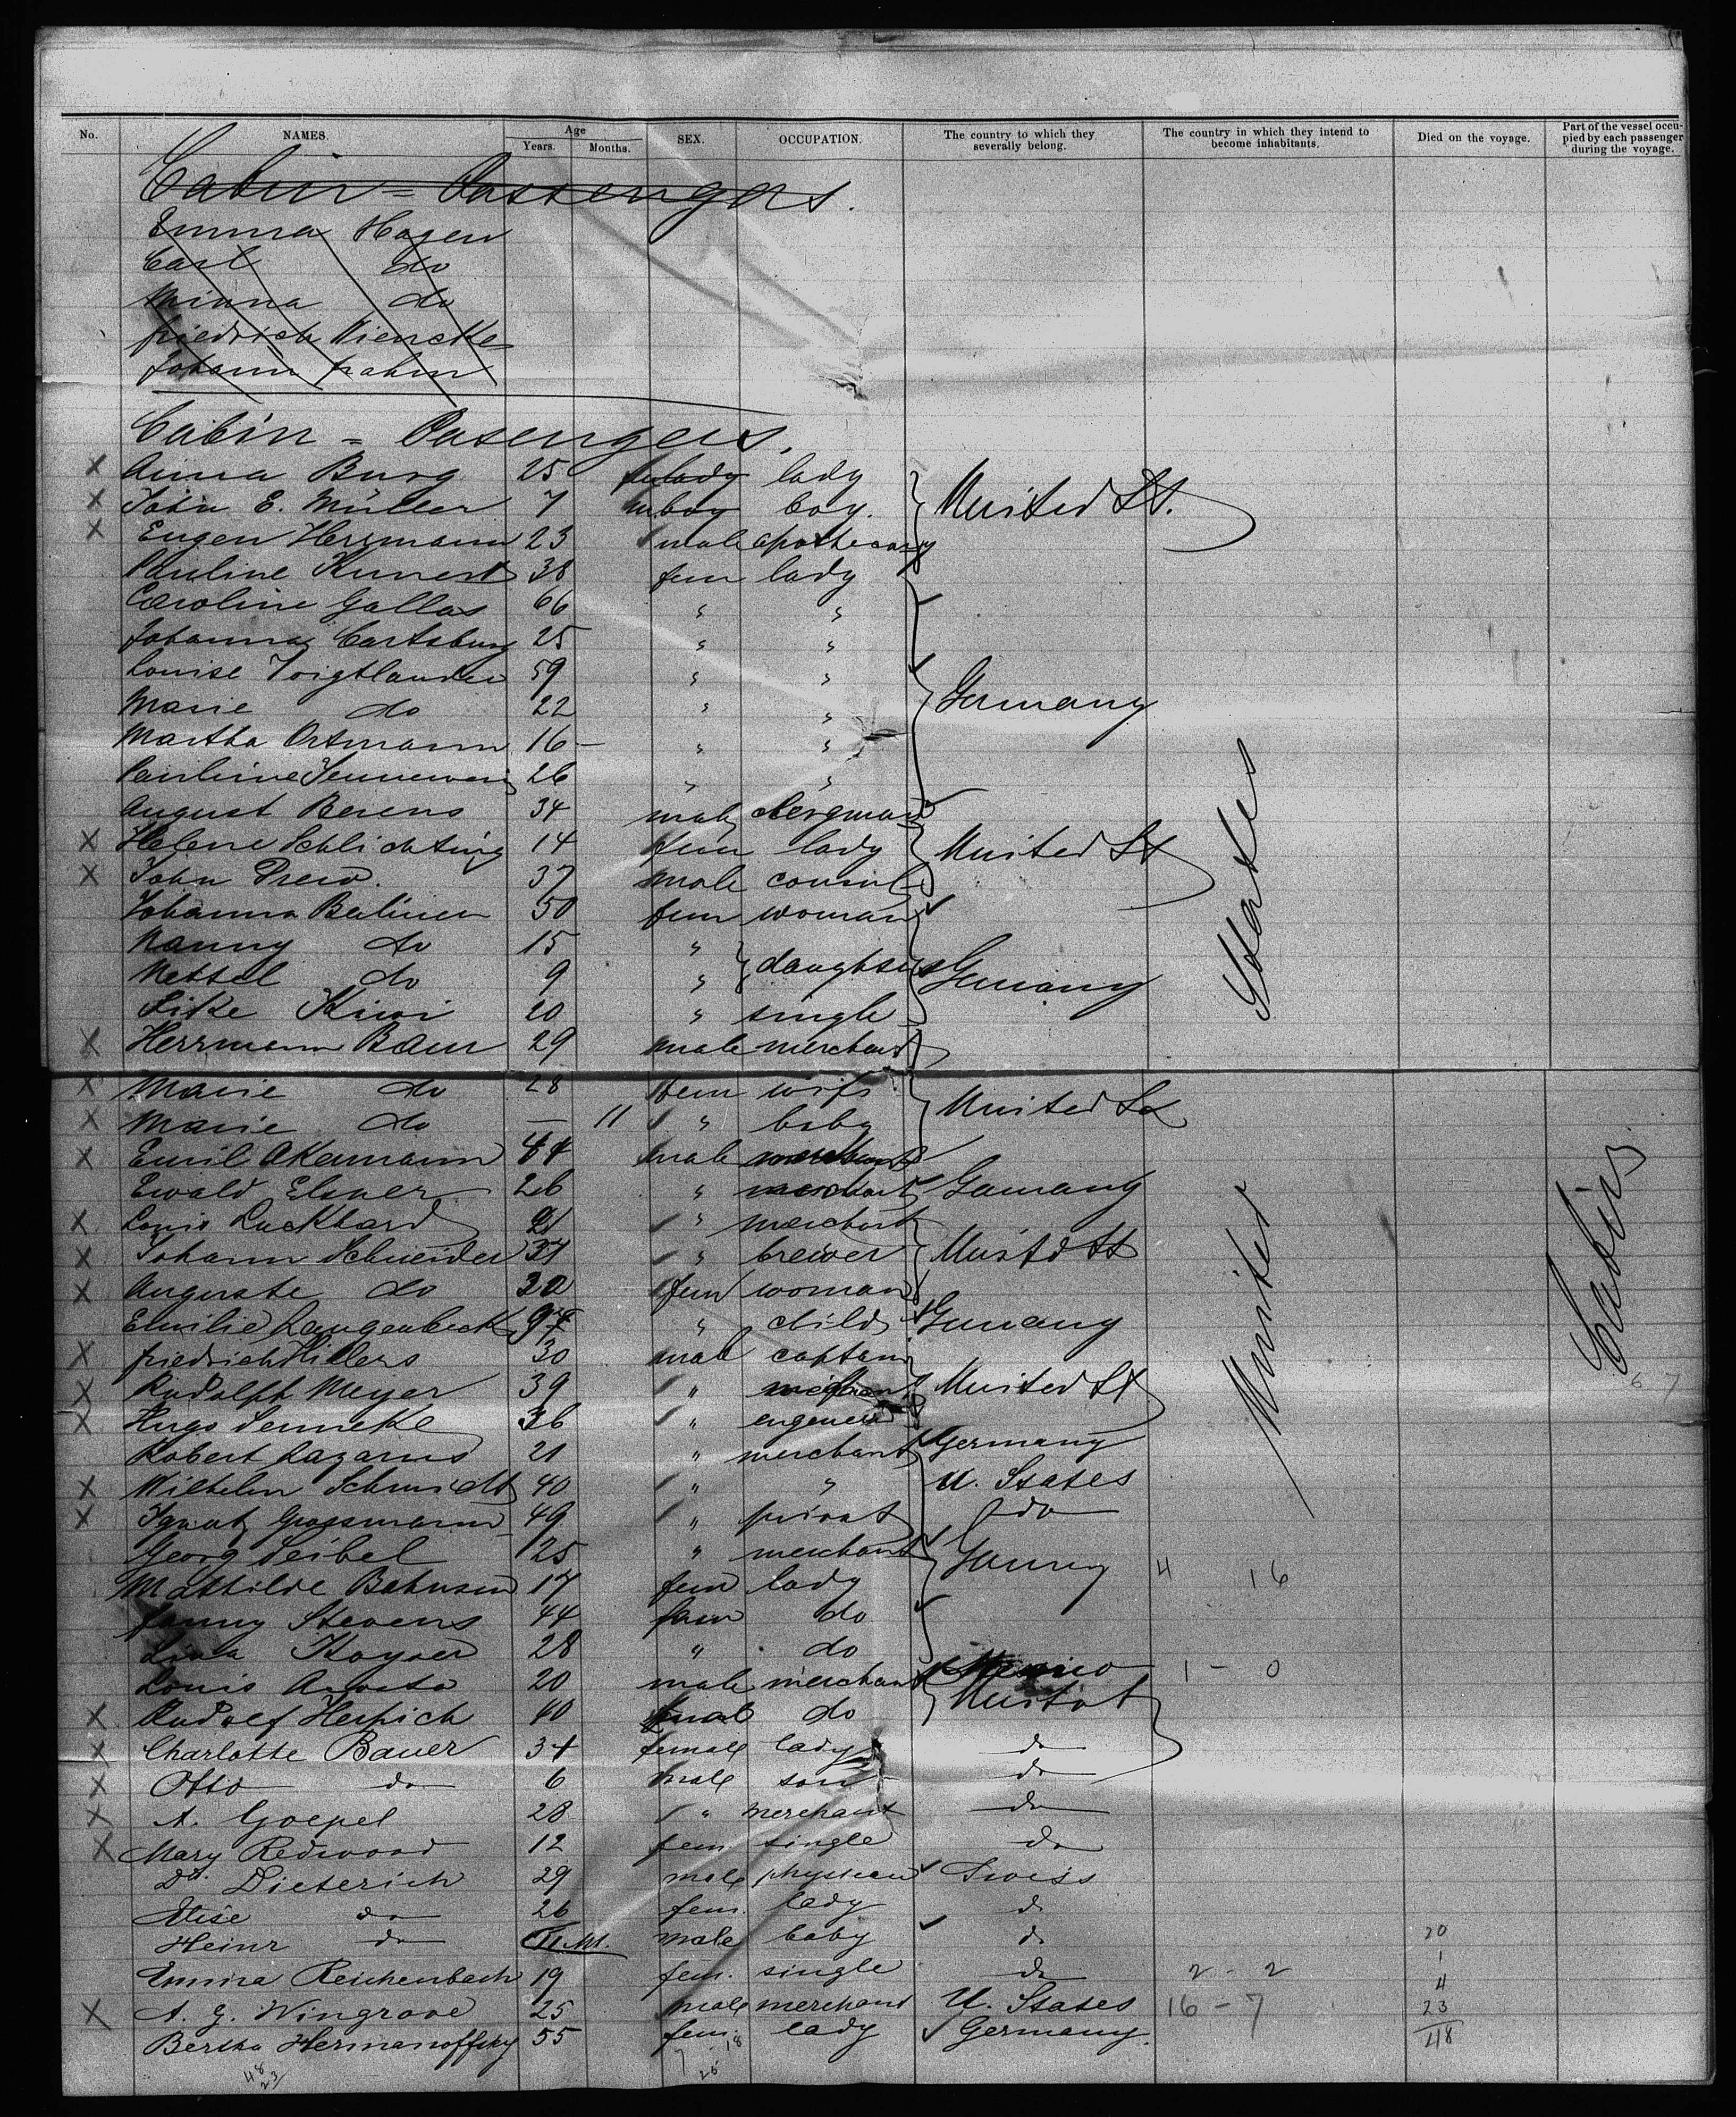 No. NAMES. Age Years. Months. SEX. OCCUPATION. The country to which they severally belong. The country in which they intend to become inhabitants. Died on the voyage. Part of the vessel occupied by each passenger during the voyage.
Cabin = Passengers.
Emma Hagen
Carl do
Minna do
Friedrich Wiencke
Johann Frahm
Cabin = Pasengers.
X Anna Burg 25 lady lady
X John E. Müller 7 boy boy. United St.
X Eugen Herrmann 23 male apothecary
Pauline Kunert 38 fem lady
Caroline Gallas 66 " "
Johanna Cartsburg 25 " "
Louise Voigtlander 59 " "
Marie do 22 " " Germany
Martha Ortmann 16 — " "
Pauline 26 " "
August Berens 34 male clergman
X Helene Schlichting 14 fem lady United St
X John Drew. 37 male consul
Johanna 50 fem woman
Nanny do 15 "
do 9 " daughters Germany
20 " single
X Herrmann Baur 29 male merchant
X Marie do 28 fem wife United St
X Marie do — 11 " baby
X Emil Akermann 44 male merchant
Ewald Elsner 26 " merchant Germany
X Louis Luckhard " merchant
X Johann Schneider 34 " brewer
X Auguste do 30 fem woman
Emilie Langenbeck 9 " child Germany
X Friedrich Hillers 30 male captain
X Rudolph Meyer 39 " United St
X Hugo 36 " engeneer
Robert Lazarus 21 " merchant Germany
X Wilhelm Schmidt 40 " " U. States
X Ignatz Grossmann 49 " privat do
Georg Seibel 25 " merchant
Mathilde Behnsen 17 fem lady 4 16
Fanny Stevens 44 fem do
Lina Kayser 28 " do
Louis 20 male merchant Mexico 1 - 0
X Rudolf Herpich 40 male do
X Charlotte Bauer 34 female lady do
X Otto do 6 male son do
X A. Goepel 28 " merchant do
X Mary Redwood 12 fem single do
Dr. Dieterich 29 male physician Swiss
Elise do 26 fem. lady do
Heinr do 11 M. male baby do 20
Emma Reichenbach 19 fem. single do 2 - 2 1
4
X A. G. Wingrove 25 male merchant U. States 16 - 7 23
Bertha Hermanoffsky 55 fem. lady Germany. 48
48
23
7 18
25
United States
Cabin
6 7